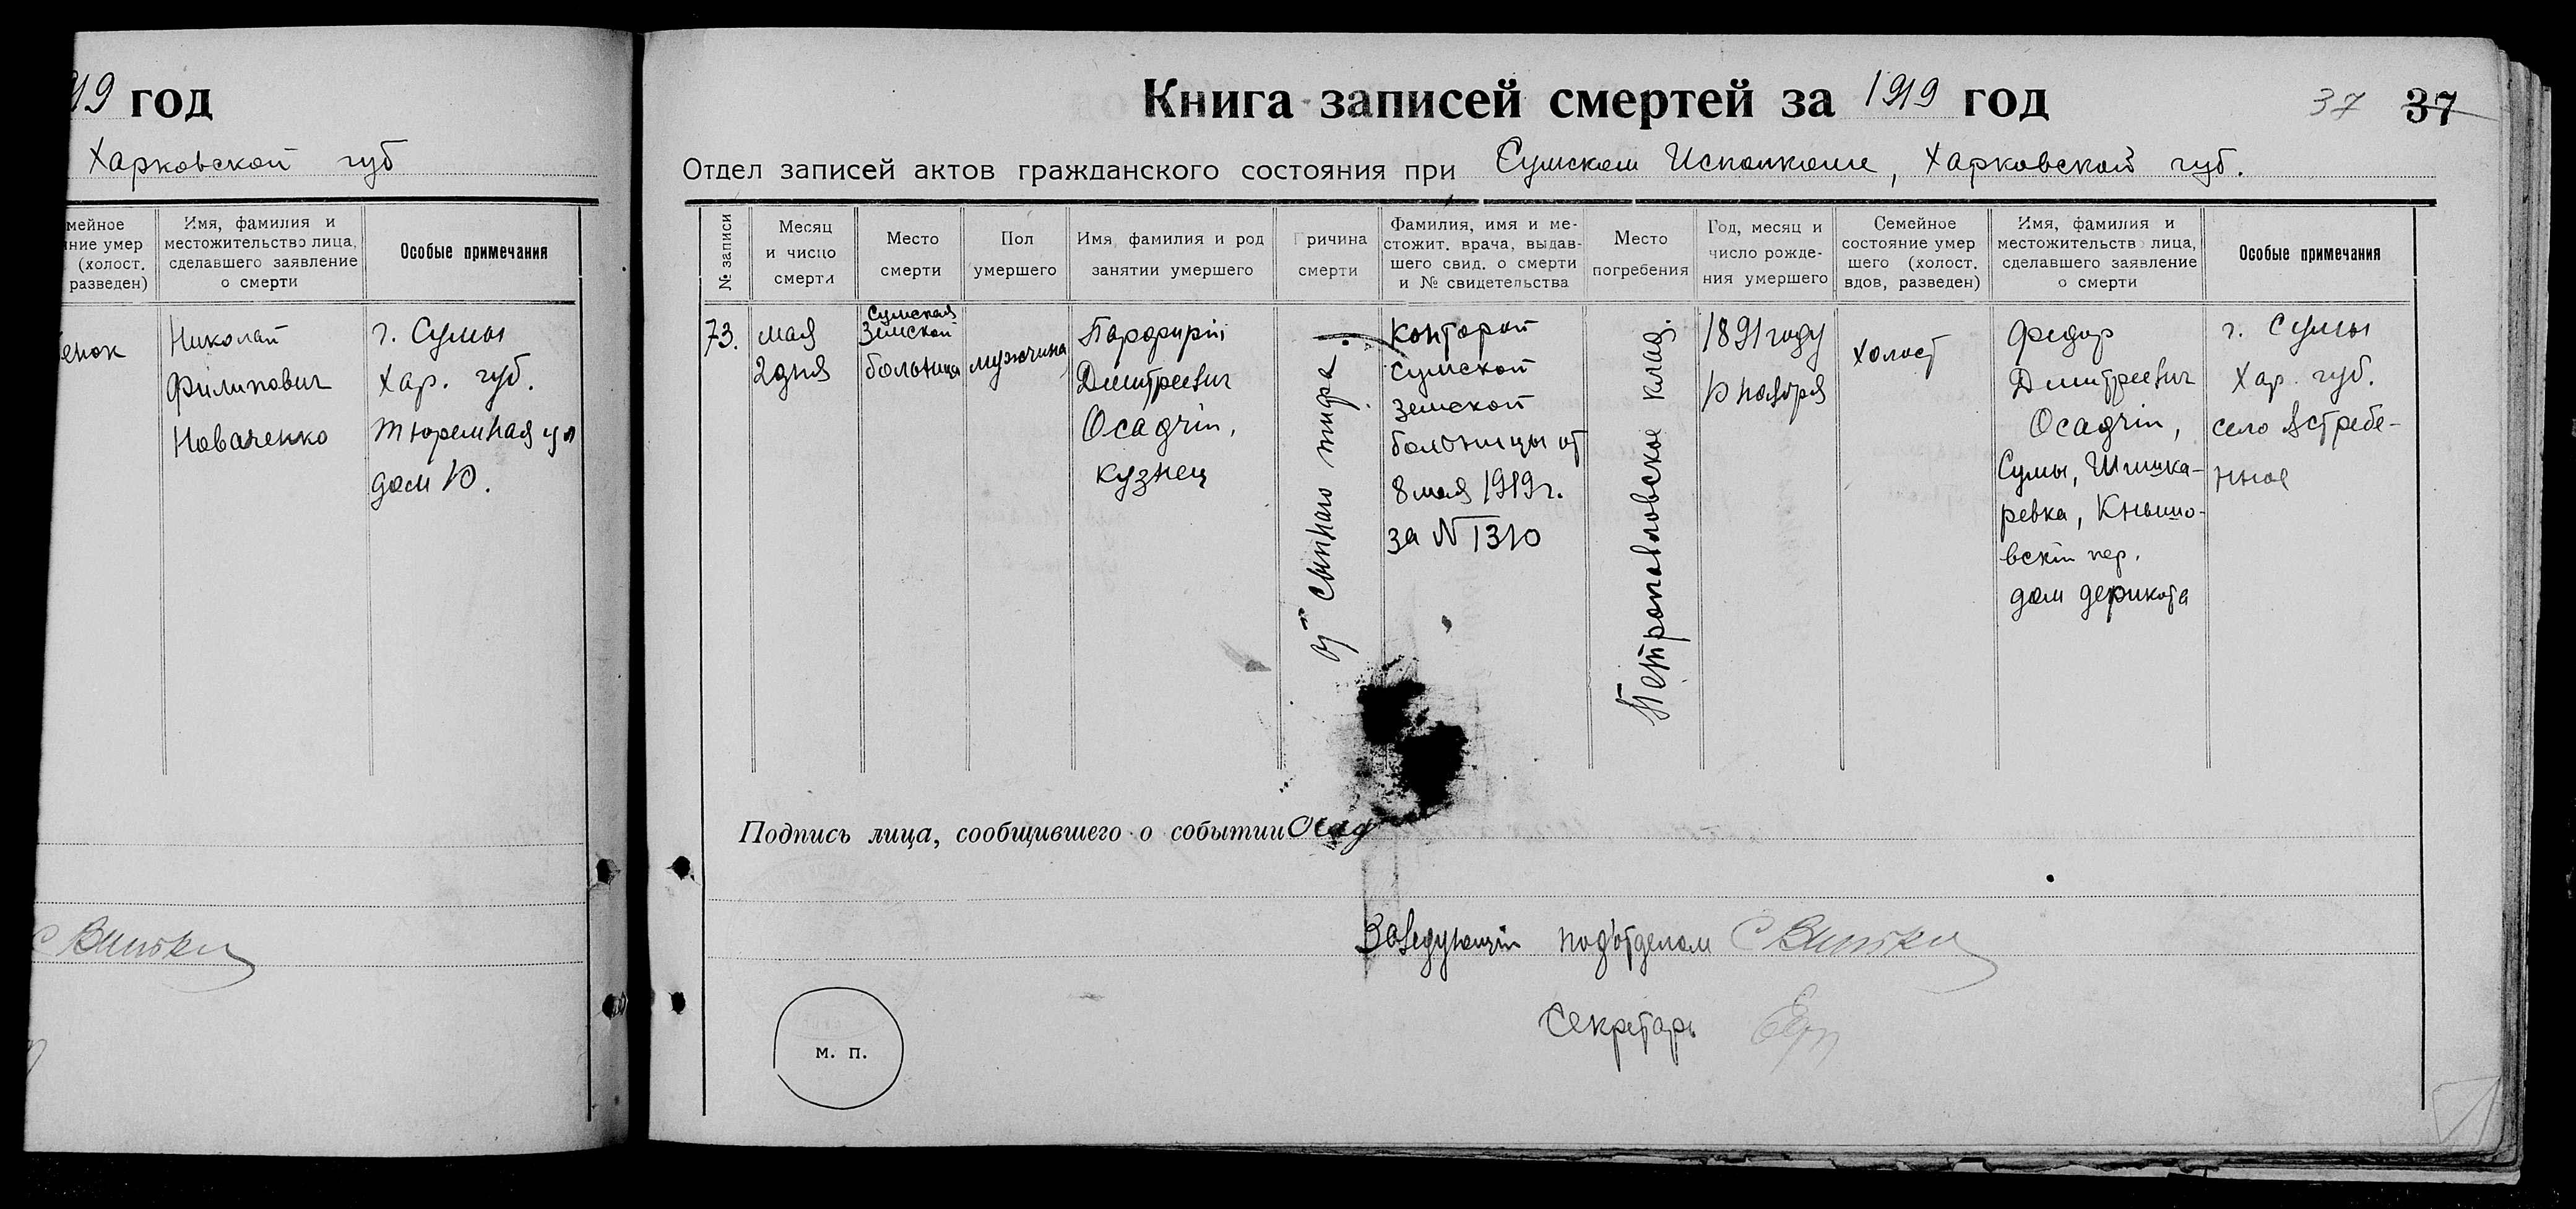 919 год
Харковской губ
мейное
ние умер
(холост.
разведен)
Имя, фамилия и
местожительство лица,
сделавшего заявление
о смерти
Особые примечания
енок
Николай
Филипович
г. Сумы
Хар. губ.
Тюремная ул
дом 10.
Книга записей смертей за 1919 год
37 37
Отдел записей актов гражданского состояния при Сумском Исполкоме, Харковской губ.
№ записи
Месяц
и число
смерти
Место
смерти
Пол
умершего
Имя, фамилия и род
занятии умершего
Причина
смерти
Фамилия, имя и ме-
стожит. врача, выдав-
шего свид. о смерти
и № свидетельства
Место
погребения
Год, месяц и
число рожде-
ния умершего
Семейное
состояние умер
шего (холост.
вдов, разведен)
Имя, фамилия и
местожительство лица,
сделавшего заявление
о смерти
Особые примечания
73.
мая
2 дня
Сумская
Земской
больница
мужчина
Порфирій
Димитреевич
Осадчій,
кузнец
от сыпного тифа.
Конторой
Сумской
земской
больницы от
8 мая 1919 г.
за N 1310
Петропавловское клад.
1891 году
10 ноября
холост
Федор
Димитреевич
Осадчій,
Сумы, Шишка-
ревка, Кнышо-
вскій пер.
дом дерикота
г. Сумы
Хар. губ.
село Ястребе-
нное
Подпись лица, сообщившего о событии Осад
Заведующій подотделом
Секретарь
м. п.